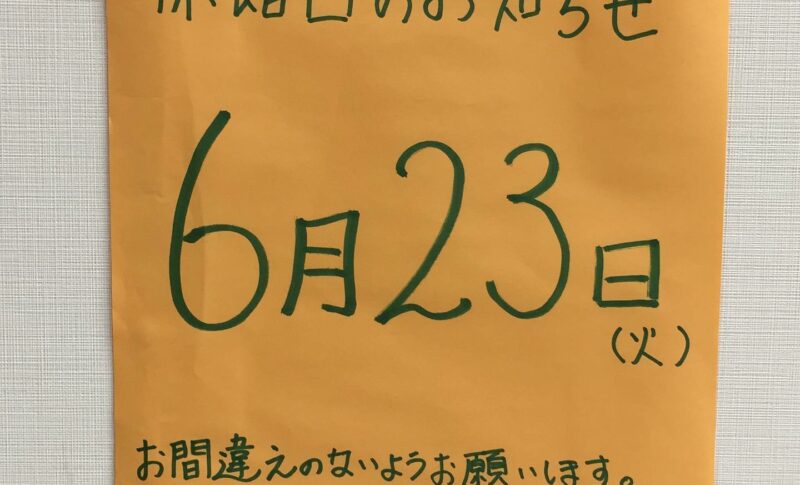 休館日のお知らせ
6月23日
(火)
お間違えのないようお願いします。